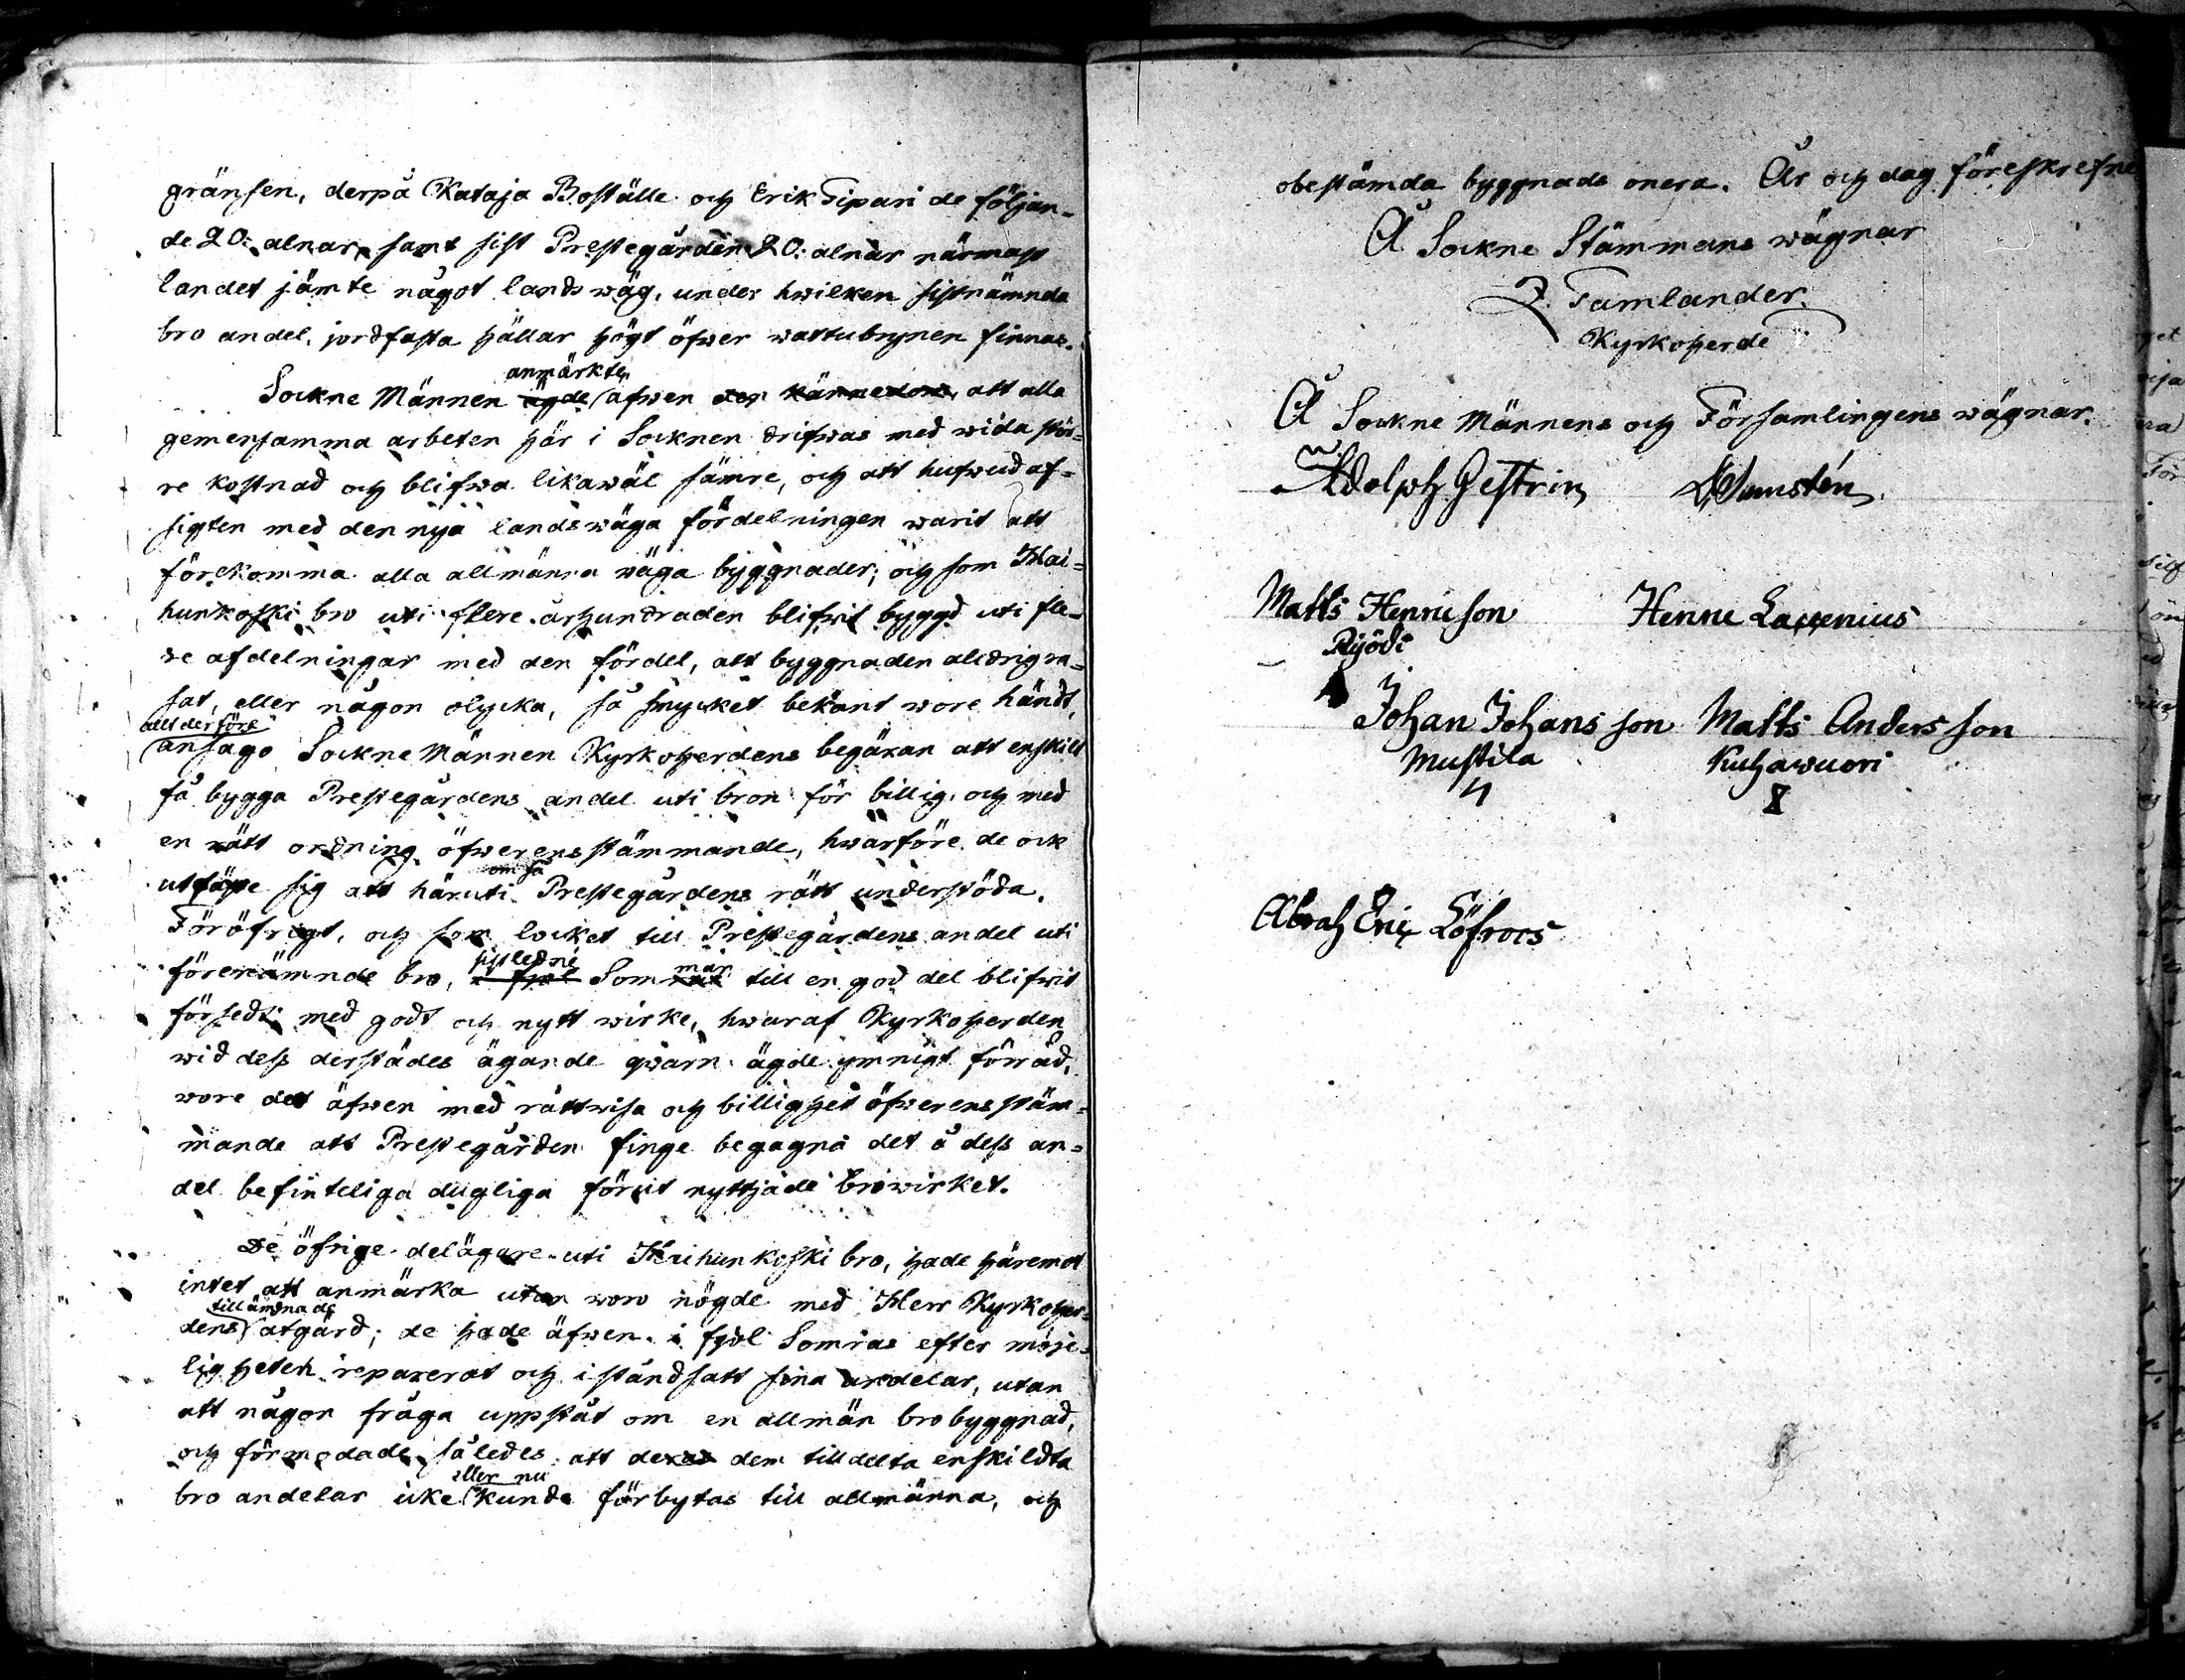 gränsen, derpå Kataja Boställe och Erik Sipari de följan-
de 20. alnar, samt sist Prestegården 20. alnar närmast
landet jämte något landsväg, under hwilken sistnämnda
bro andel, jordfasta hällar högt öfwer wattubrynen finnas.
anmärkte
Sockne Männen ägde äfwen den kännedom, att alla
gemensamma arbeten här i Socknen drifwas med wida stör-
re kostnad och blifwa likawäl sämre, och att hufwudaf-
sigten med den nya landswäga fördelningen warit att
förekomma alla allmänna wäga byggnader; och som Hai-
hunkoski bro uti flere århundraden blifwit byggd uti fle-
re afdelningar med den fördel, att byggnaden aldrig ra-
sat, eller någon olycka, så mycket bekant wore händt,
allt derföre
ansågo Sockne Männen Kyrkoherdens begäran att enskilt
få bygga Prestegårdens andel uti bron för billig, och med
en rätt ordning öfwerensstämmande, hwarföre de ock
om så
utfäste sig att häruti Prestegårdens rätt understöda.
Föröfrigt, och som locket till Prestegårdens andel uti
sistledne mar
förenämnde bro, i fjol Somras till en god del blifwit
försedt med godt och nytt wirke, hwaraf Kyrkoherden
wid dess derstädes ägande qwarn ägde ymnigt förråd,
wore det äfwen med rättwisa och billighet öfwerensstäm-
mande att Prestegården finge begagna det å dess an-
del befinteliga dugliga förut nyttjade browirket.
De öfrige delägare uti Haihunkoski bro, hade häremot
intet att anmärka utan woro nögde med Herr Kyrkoher-
tillämnade
dens åtgärd; de hade äfwen i fjol Somras efter möje-
ligheten reparerat och iståndsatt sina andelar, utan
att någon fråga uppstått om en allmän brobyggnad,
och förmodade således att deras dem tilldelta enskildta
eller nu
bro andelar icke kunde förbytas till allmänna, och
obestämda byggnads onera. År och dag föreskrefne
Å Sockne Stämmans wägnar
Z. Tamlander.
Kyrkoherde
Å Sockne Männens och Församlingens wägnar.
Adolph Gestrin
Matts Henricson Henric
Pyödi
Johan Johansson Matts Andersson
Mustila Kuhawuori
Abrah Eric Löfroos